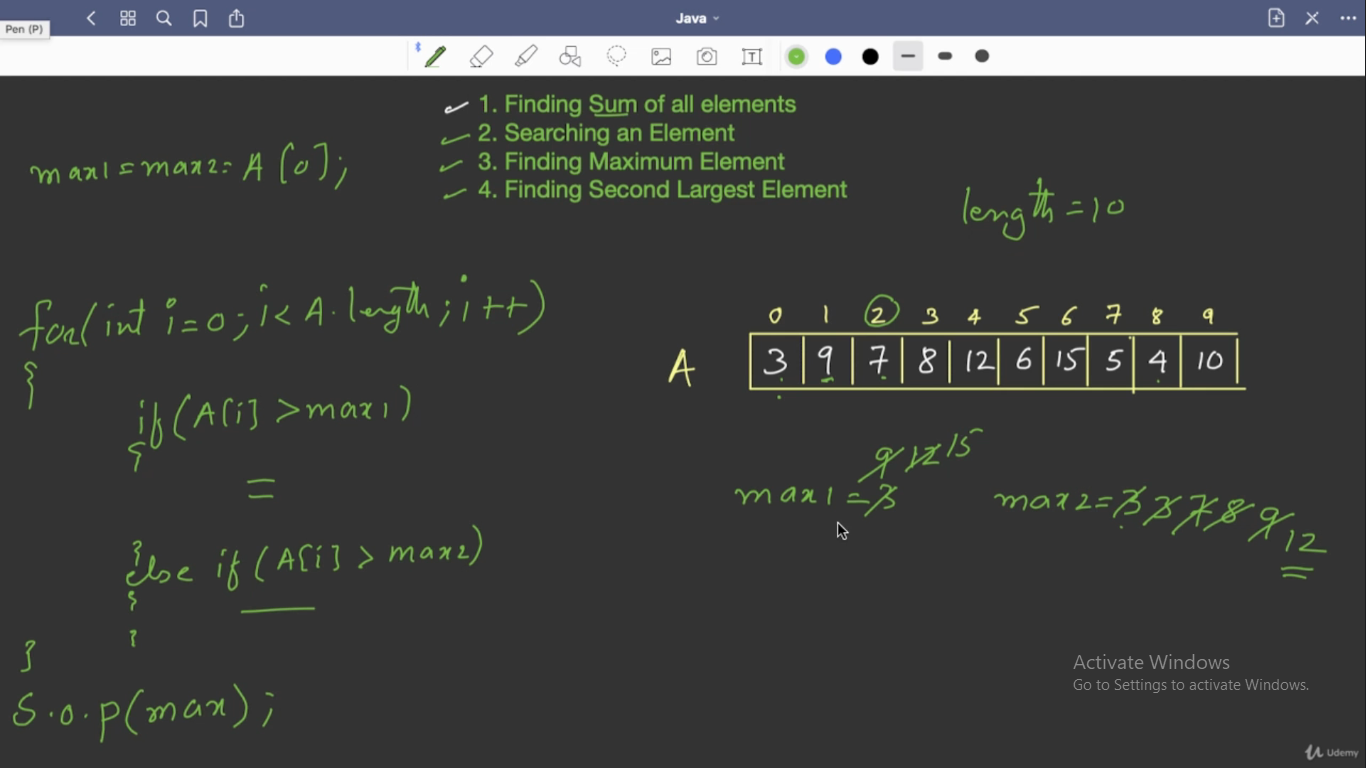 Java
Pen (P)
T
1. Finding Sum of all elements
2. Searching an Element
3. Finding Maximum Element
4. Finding Second Largest Element
max1 = max2 = A[0];
length = 10
for(int i=0; i< A.length; i++)
{
if(A[i] > max1)
{
=
}
else if (A[i] > max2)
{
}
}
S.o.p(max);
0 1 2 3 4 5 6 7 8 9
A 3 9 7 8 12 6 15 5 4 10
9 12 15
max1 = 3
max2 = 3 3 7 8 9 12
Activate Windows
Go to Settings to activate Windows.
Udemy